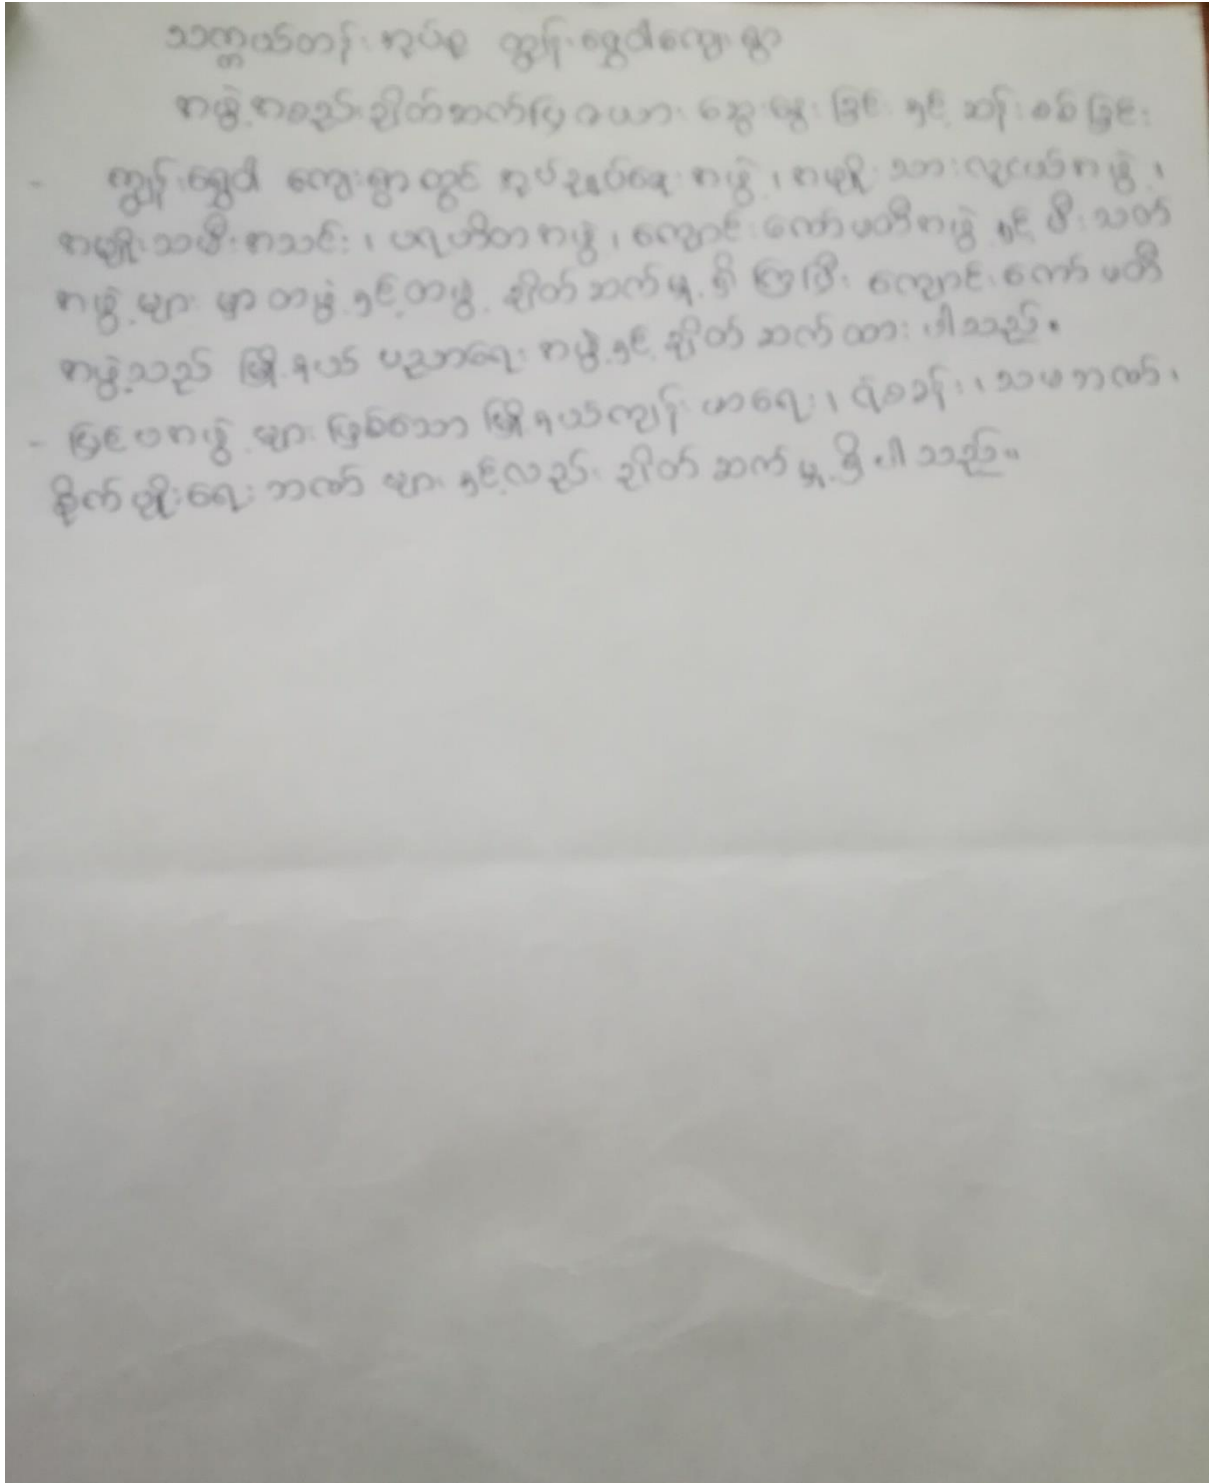 သက္ကယ်တန်း အုပ်စု ကျွန်းရွှေဝါကျေးရွာ
အဖွဲ့အစည်းချိတ်ဆက်ပြဇယား ဆွေးနွေးခြင်းနှင့် ဆန်းစစ်ခြင်း
- ကျွန်းရွှေဝါ ကျေးရွာတွင် အုပ်ချုပ်ရေးအဖွဲ့၊ အမျိုးသားလူငယ်အဖွဲ့၊
အမျိုးသမီးအသင်း၊ ပရဟိတအဖွဲ့၊ ကျောင်းကော်မတီအဖွဲ့နှင့် မီးသတ်
အဖွဲ့များမှာ တဖွဲ့နှင့်တဖွဲ့ ချိတ်ဆက်မှု ရှိကြပြီး ကျောင်းကော်မတီ
အဖွဲ့သည် မြို့နယ် ပညာရေးအဖွဲ့နှင့် ချိတ်ဆက်ထားပါသည်။
- ပြင်ပအဖွဲ့များ ဖြစ်သော မြို့နယ်ကျန်းမာရေး၊ ရဲစခန်း၊ သမဘဏ်၊
စိုက်ပျိုးရေးဘဏ်များနှင့်လည်း ချိတ်ဆက်မှု ရှိပါသည်။